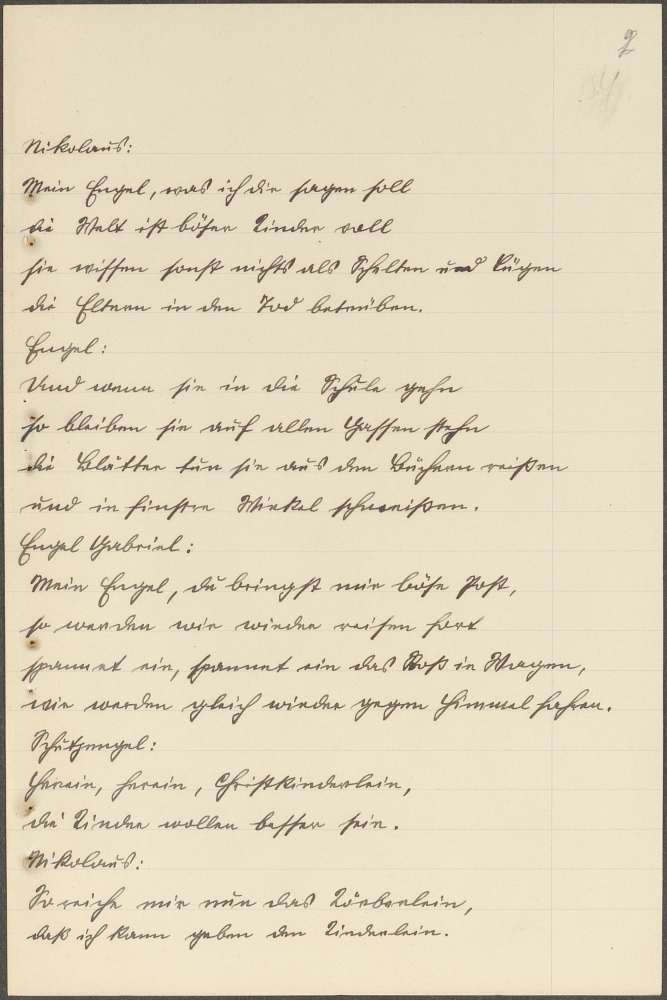 2
Nikolaus:
Mein Engel, was ich dir sagen soll
die Welt ist böser Kinder voll
sie wissen sonst nichts als Schelten und Lügen
die Eltern in den Tod betrüben.
Engel:
Und wenn sie in die Schule gehn
so bleiben sie auf allen Gassen stehn
die Blätter tun sie aus den Büchern reißen
und in finstre Winkel schmeißen.
Engel Gabriel:
Mein Engel, du bringst mir böse Post,
so werden wir wieder reisen fort
spannet ein, spannet ein das Roß in Wagen,
wir werden gleich wieder gegen Himmel fahren.
Schutzengel:
Herein, herein, Christkinderlein,
die Kinder wollen besser sein.
Nikolaus:
So reiche mir nun das Körberlein,
daß ich kann geben den Kinderlein.